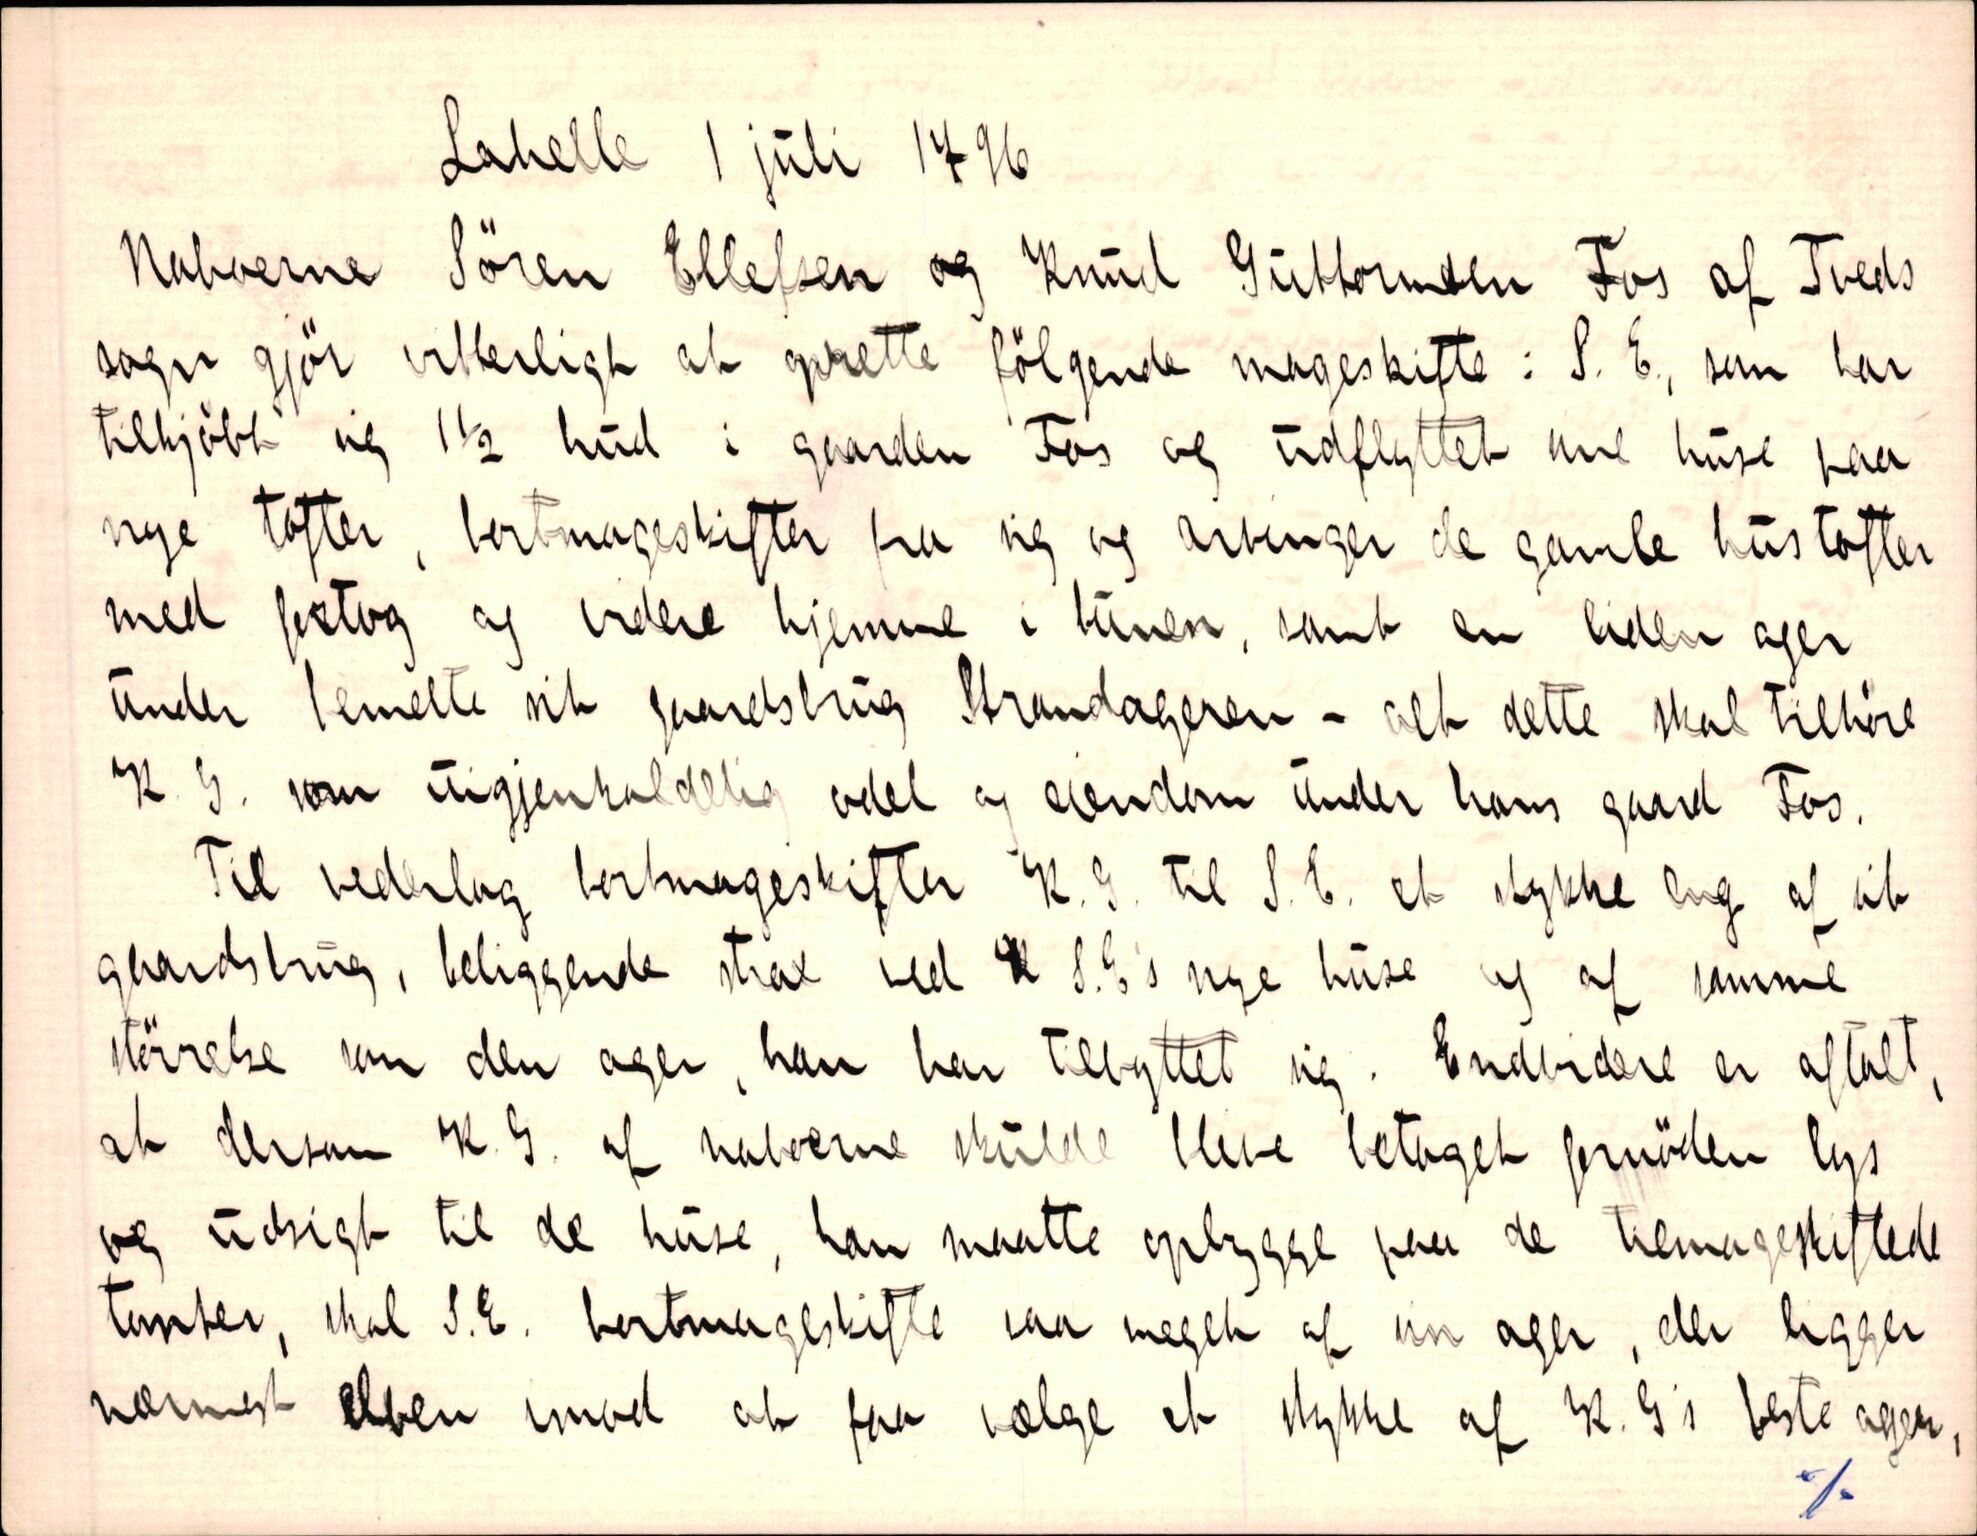 Lahelle 1 juli 1796
Naboerne Sören Ellefsen og Knud Guttormsen Fos af Tveds
sogn gjör vitterligt at oprette fölgende mageskifte: S. E., som har
tilkjöbt sig 1½ hud i gaarden Fos og udflyttet sine huse paa
nye tofter, bortmageskifter fra sig og arvinger de gamle hustofter
med fortog og videre hjemme i tunen, samt en liden ager
under bemelte sit gaardsbrug Strandageren - alt dette skal tilhöre
K. G. som uigjenkaldelig odel og eiendom under hans gaard Fos.
Til vederlag bortmageskifter K. G. til S. E. et stykke eng af sit
gaardsbrug, beliggende strax ved S. E's nye huse og af samme
störrelse som den ager, han har tilbyttet sig. Endvidere er aftalt,
at dersom K. G. af naboerne skulde blive betaget fornöden lys
og udsigt til de huse, han maatte opbygge paa de tilmageskiftede
tomter, skal S. E. bortmageskifte saa meget af sin ager, der ligger
nærmest elven imod at faa vælge et stykke af K. G's beste ager,
./.